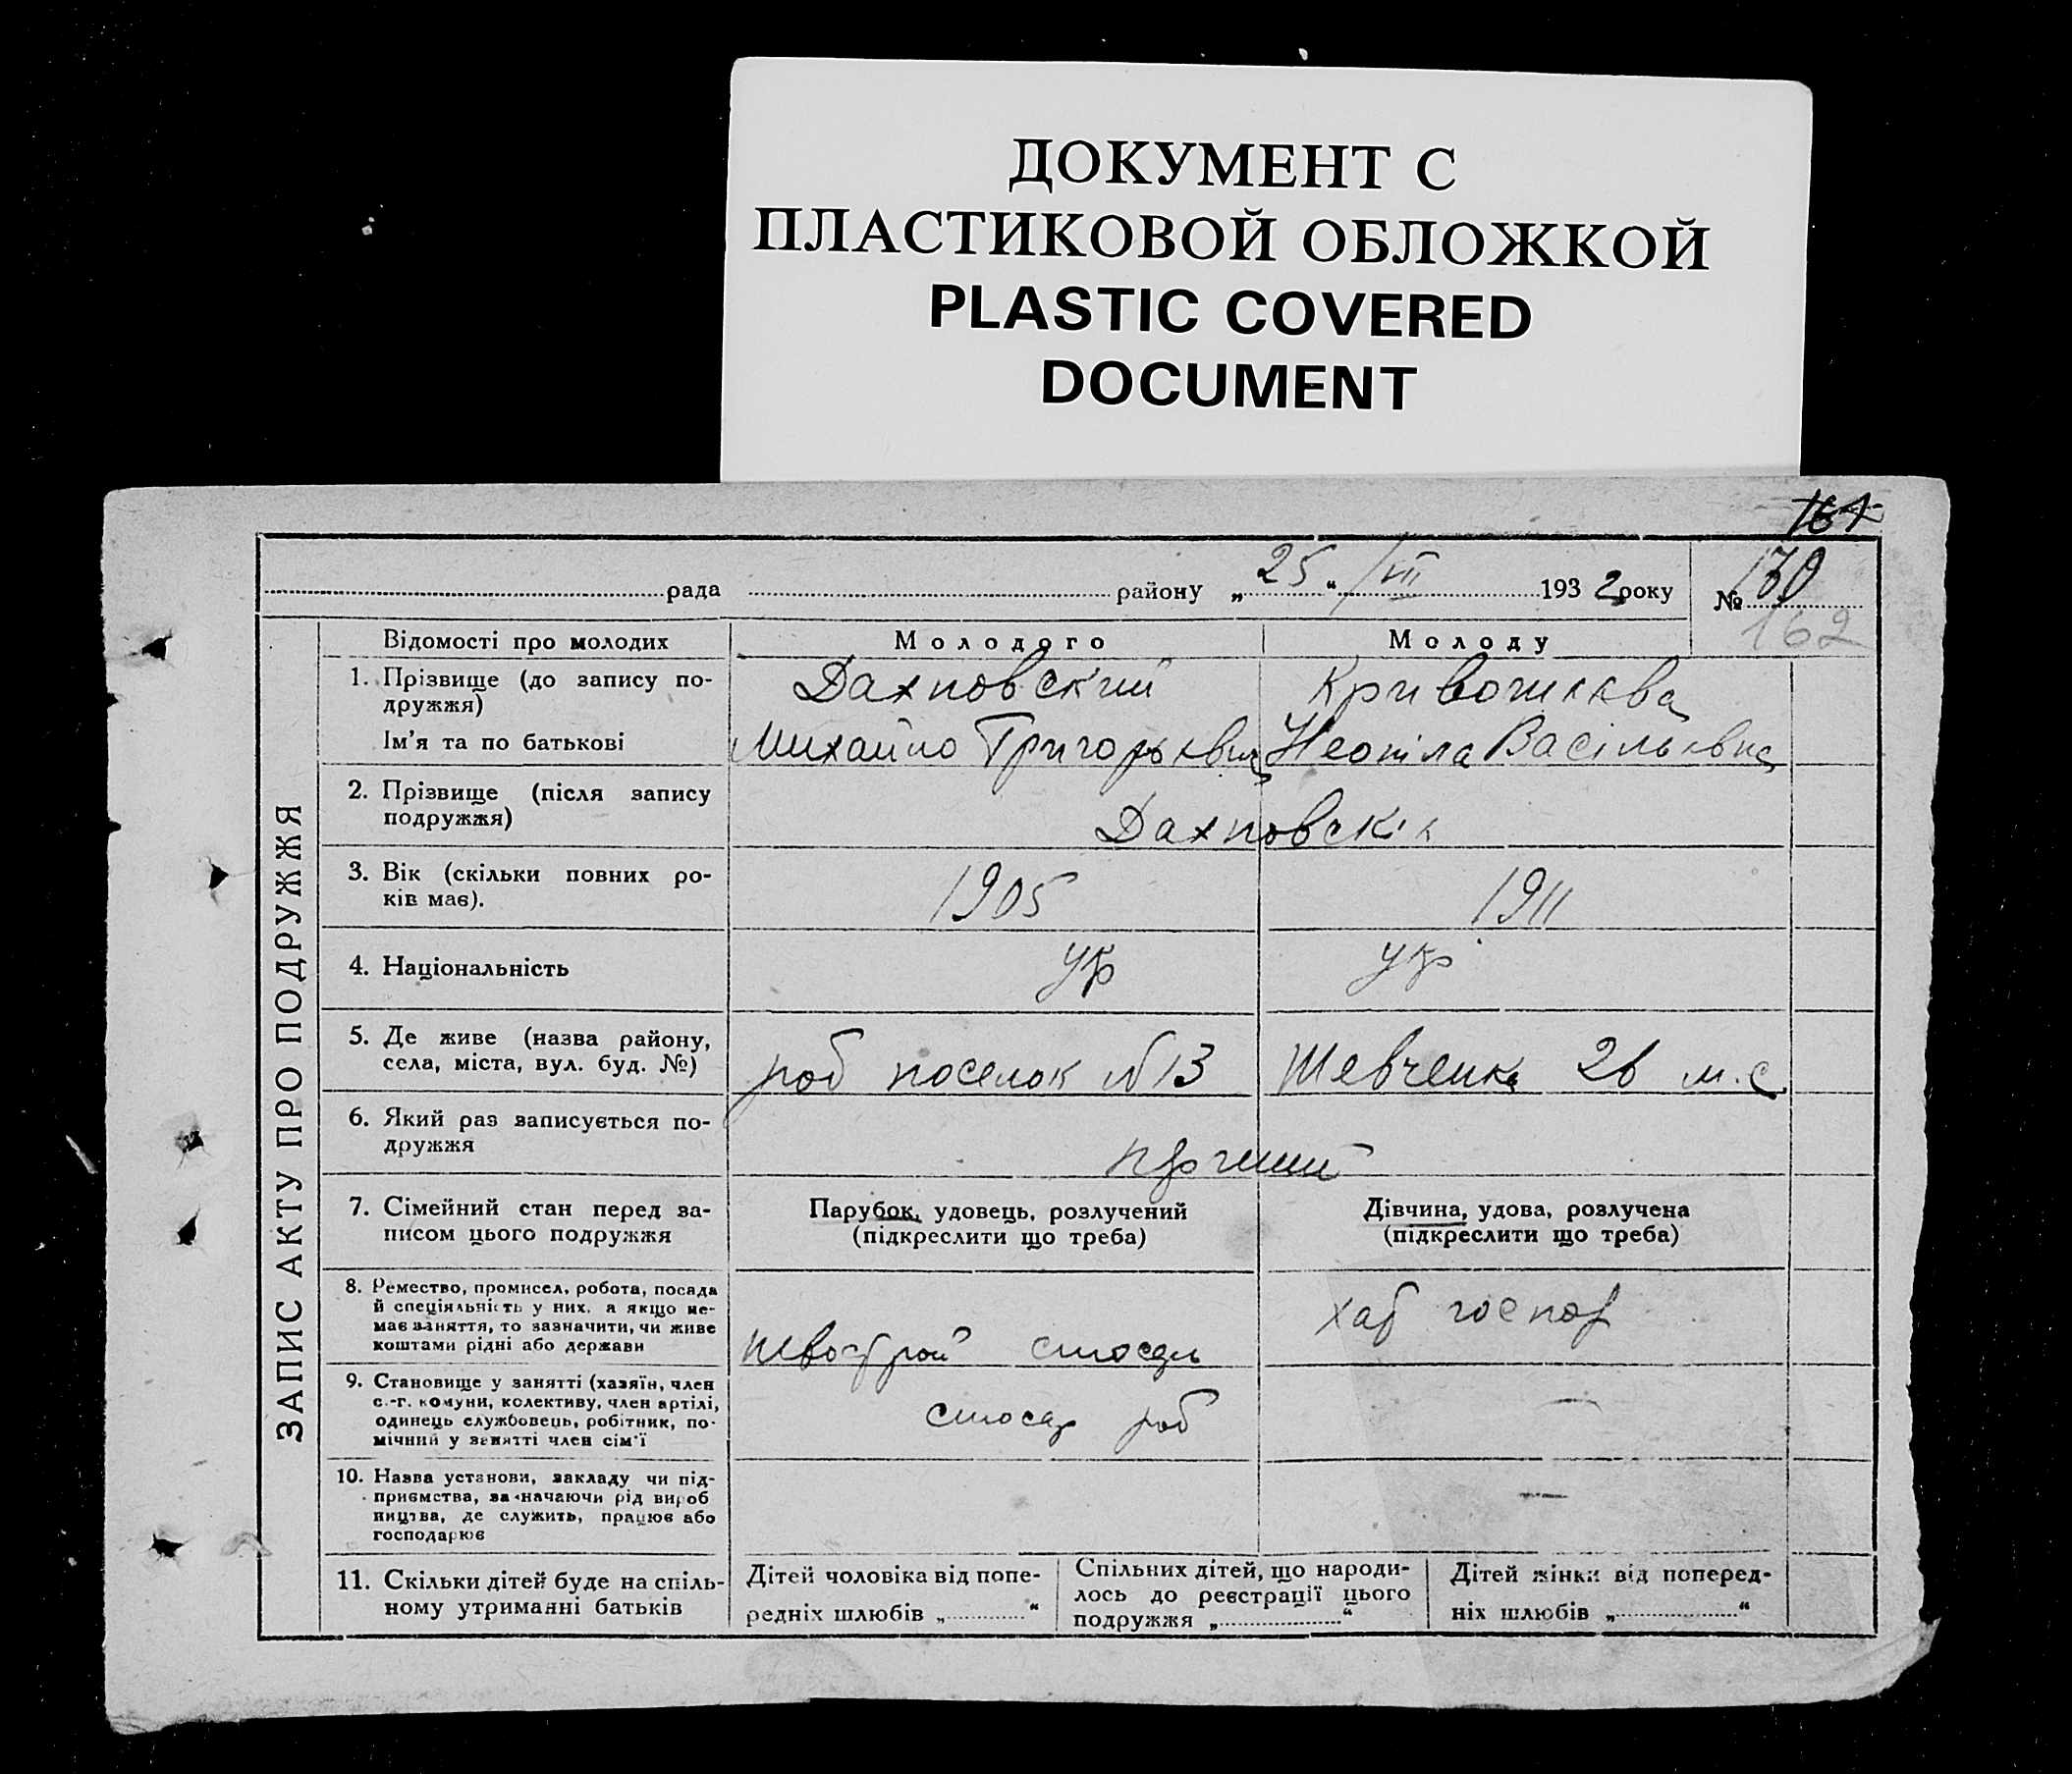 ДОКУМЕНТ С
ПЛАСТИКОВОЙ ОБЛОЖКОЙ
PLASTIC COVERED
DOCUMENT
161
рада району „25“ /VII 1932 року № 130
162
ЗАПИС АКТУ ПРО ПОДРУЖЖЯ
Відомості про молодих Молодого Молоду
1. Прізвище (до запису по-
дружжя)
Дахновский
Ім'я та по батькові
Михайло Григорьевич Неоніла Васільевна
2. Прізвище (після запису
подружжя)
Дахновскіе
3. Вік (скільки повних ро-
ків має).
1905 1911
4. Національність
укр укр
5. Де живе (назва району,
села, міста, вул. буд. №)
роб поселок №13 Шевченка 26 м.с.
6. Який раз записується по-
дружжя
7. Сімейний стан перед за-
писом цього подружжя
Парубок, удовець, розлучений
(підкреслити що треба)
Дівчина, удова, розлучена
(підкреслити що треба)
8. Ремество, промисел, робота, посада
й спеціяльність у них, а якщо не-
має заняття, то зазначити, чи живе
коштами рідні або держави
слюсарь
хат госпор
9. Становище у занятті (хазяїн, член
с.-г. комуни, колективу, член артілі,
одинець службовець, робітник, по-
мічний у занятті член сім'ї
слюсар роб
—
10. Назва установи, закладу чи під-
приємства, зазначаючи рід вироб
ництва, де служить, працює або
господарює
—
11. Скільки дітей буде на спіль-
ному утриманні батьків
Дітей чоловіка від попе-
редніх шлюбів „ “
Спільних дітей, що народи-
лось до реєстрації цього
подружжя „ “
Дітей жінки від поперед-
ніх шлюбів „ “